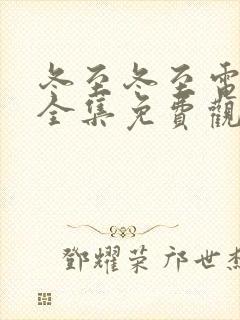 冬至冬至電
全集免費觀
鄧耀荣 邝世杰